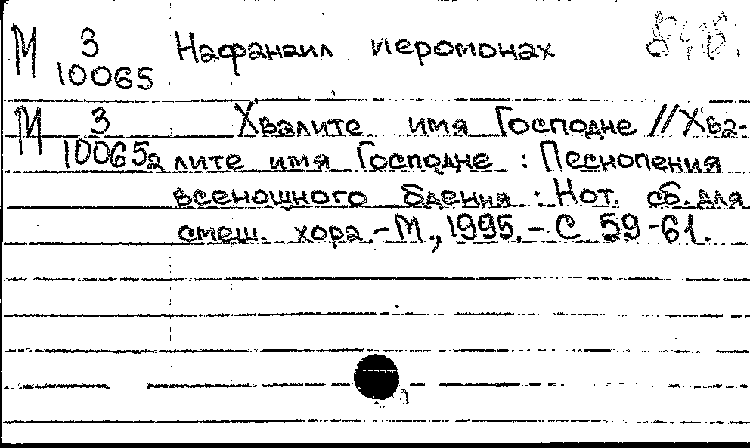 М 3 Нафанаил иеромонах
10065
М 3 Хвалите имя Господне // Хва-
10065а лите имя Господне : Песнопения
всенощного бдения : Нот. сб. для
смеш. хора. - М., 1995. - С 59-61.